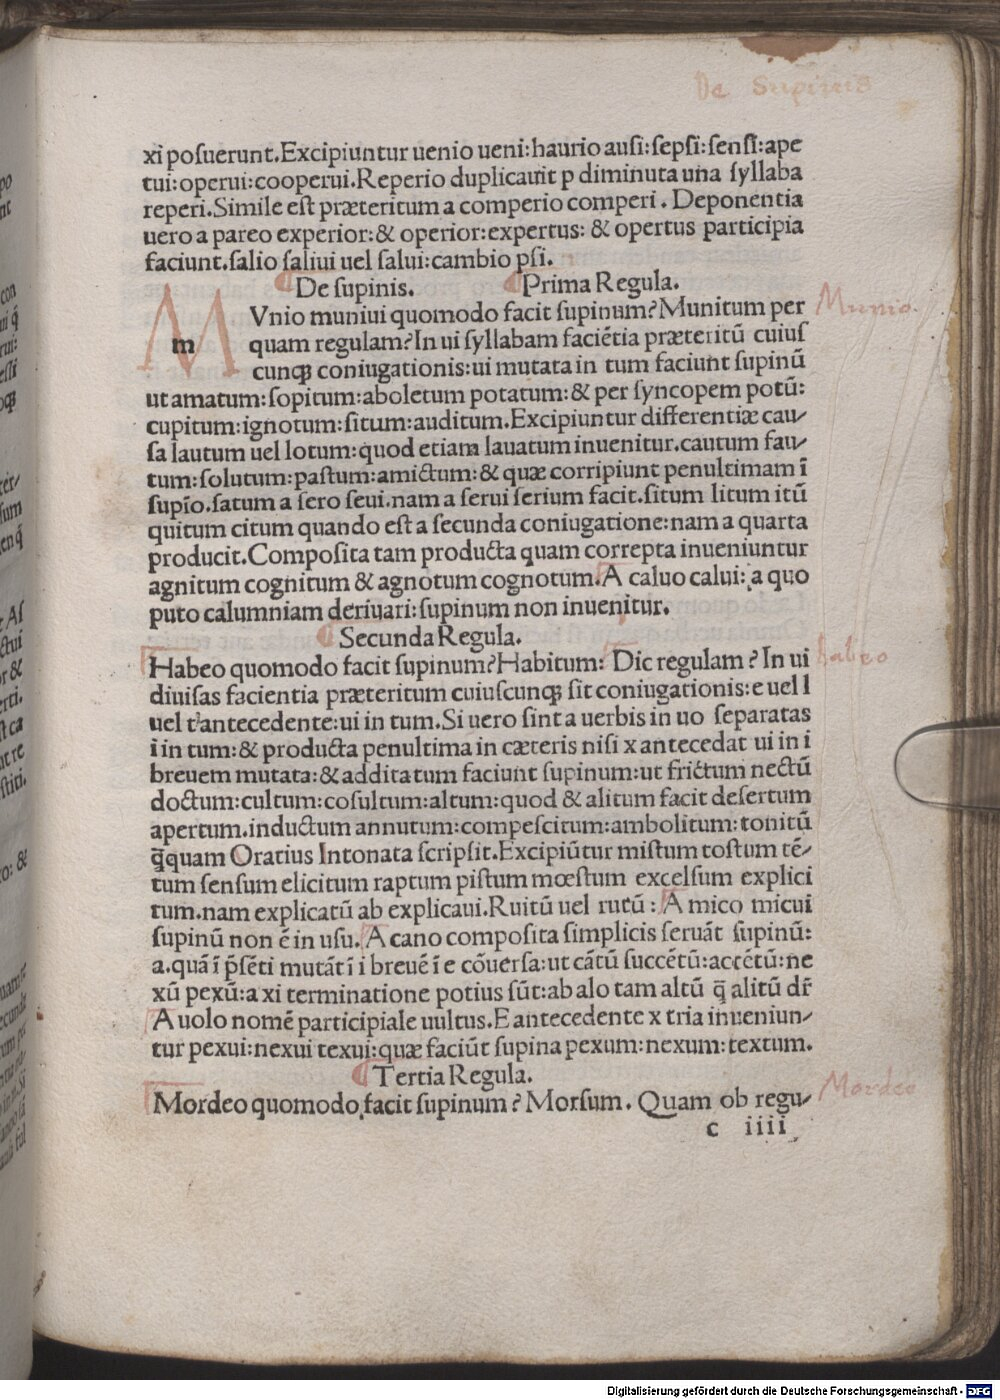 De Supinis
xi posuerunt.Excipiuntur uenio ueni:haurio ausi:sepsi:sensi:ape
tui:operui:cooperui.Reperio duplicauit p diminuta una syllaba
reperi.Simile est præteritum a comperio comperi. Deponentia
uero a pareo experior:& operior:expertus: & opertus participia
faciunt.salio saliui uel salui:cambio psi.
De supinis. Prima Regula.
MVnio muniui quomodo facit supinum?Munitum per
m quam regulam?In ui syllabam faciētia præteritū cuius
cunqʒ coniugationis:ui mutata in tum faciunt supinū
ut amatum:sopitum:aboletum potatum:& per syncopem potū:
cupitum:ignotum:situm:auditum.Excipiuntur differentiæ cau/
sa lautum uel lotum:quod etiam lauatum inuenitur.cautum fau/
tum:solutum:pastum:amictum:& quæ corripiunt penultimam ī
supīo.satum a sero seui.nam a serui serium facit.situm litum itū
quitum citum quando est a secunda coniugatione:nam a quarta
producit.Composita tam producta quam correpta inueniuntur
agnitum cognitum & agnotum cognotum.A caluo calui: a quo
puto calumniam deriuari:supinum non inuenitur.
Secunda Regula.
Habeo quomodo facit supinum?Habitum: Dic regulam? In ui
diuisas facientia præteritum cuiuscunqʒ sit coniugationis:e uel l
uel t antecedente:ui in tum.Si uero sint a uerbis in uo separatas
i in tum:& producta penultima in cæteris nisi x antecedat ui in i
breuem mutata:& addita tum faciunt supinum:ut frictum nectū
doctum:cultum:cosultum:altum:quod & alitum facit desertum
apertum.inductum annutum:compescitum:ambolitum:tonitū
q̄quam Oratius Intonata scripsit.Excipiūtur mistum tostum tē/
tum sensum elicitum raptum pistum mœstum excelsum explici
tum.nam explicatū ab explicaui.Ruitū uel rutū: A mico micui
supinū non ē in usu. A cano composita simplicis seruāt supinū:
a.quā ī p̄sēti mutāt ī i breuē ī e cōuersa:ut cātū succētū:accētū:ne
xū pexū:a xi terminatione potius sūt:ab alo tam altū q̄ alitū dr̄
A uolo nomē participiale uultus.E antecedente x tria inueniun/
tur pexui:nexui texui:quæ faciūt supina pexum:nexum:textum.
Tertia Regula.
Mordeo quomodo facit supinum? Morsum. Quam ob regu/
c iiii
Munio.
habeo
Mordeo
Digitalisierung gefördert durch die Deutsche Forschungsgemeinschaft - DFG